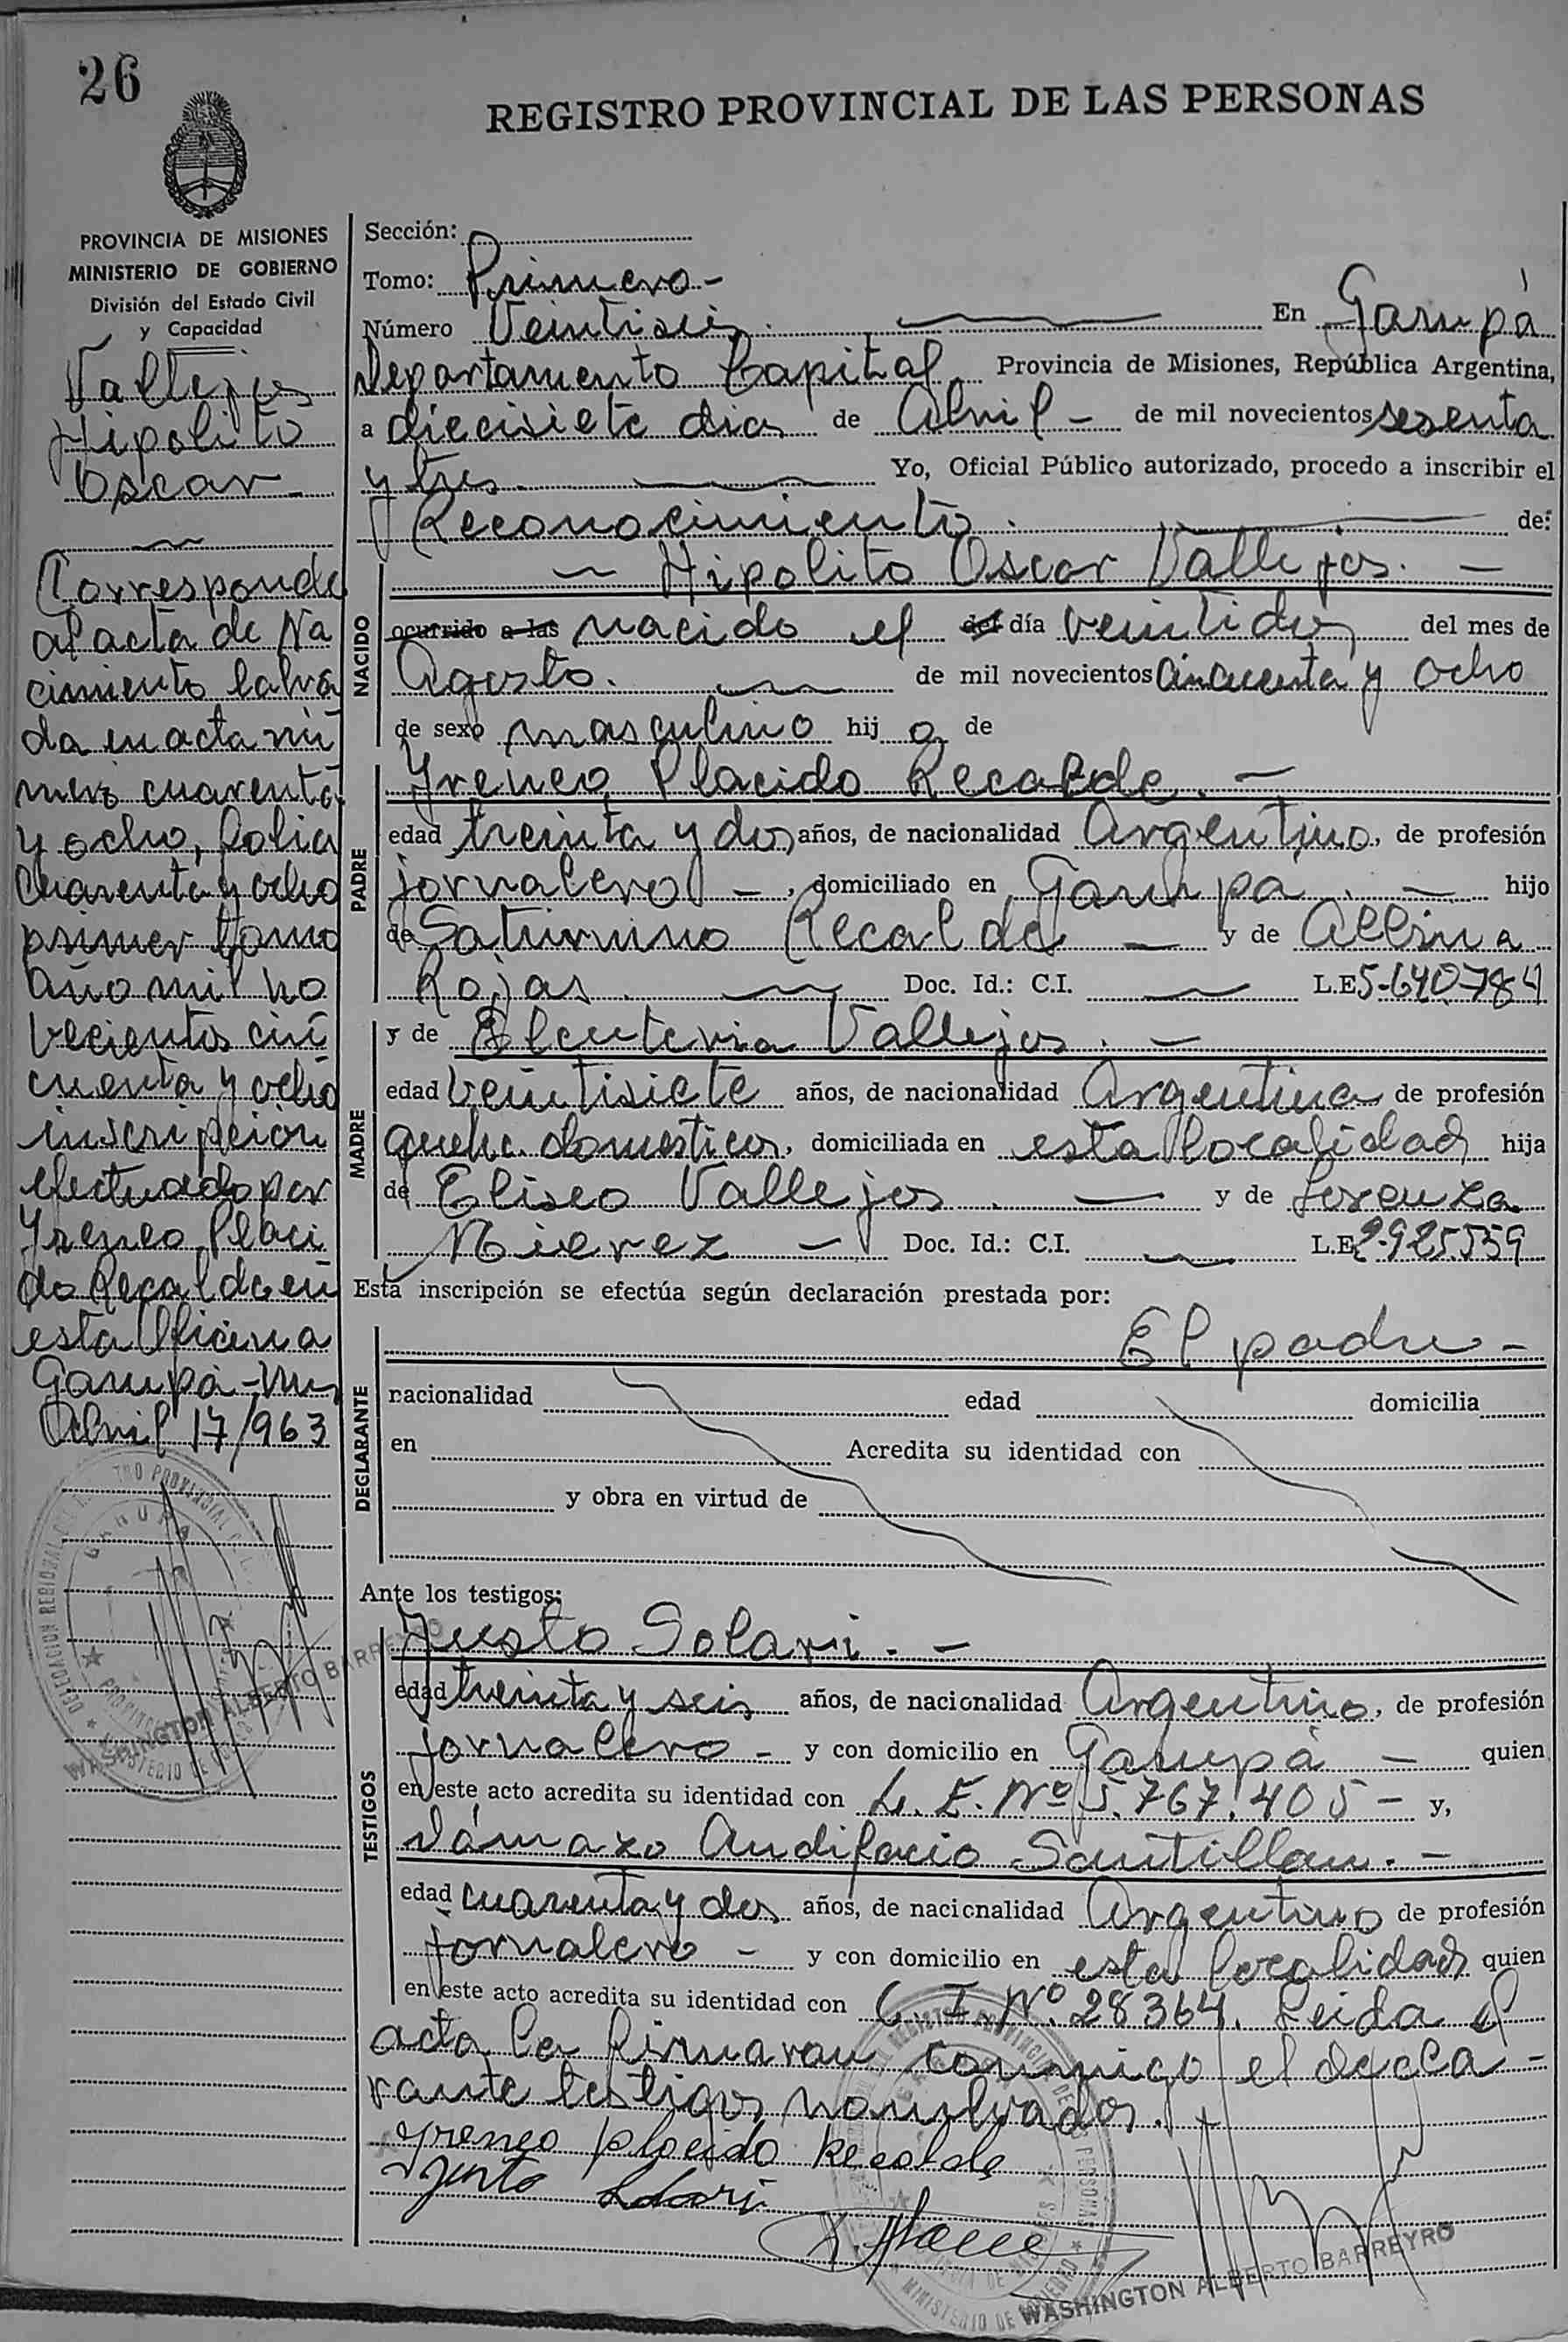 26
REGISTRO PROVINCIAL DE LAS PERSONAS
PROVINCIA DE MISIONES
MINISTERIO DE GOBIERNO
División del Estado Civil
y Capacidad
Vallejos
Hipolito
Oscar
Corresponde
al acta de Na
cimiento labra
da en acta nú
mero cuarenta
y ocho, folio
cuarenta y ocho
primer tomo
año mil no
vecientos cin
cuenta y ocho
inscripcion
efectuado por
Yreneo Placi
do Recalde en
esta Oficina
Garupá-Mnes
Abril 17/963
WASHINGTON ALBERTO BARREYRO
Sección:
Tomo: Primero-
Número Veintiseis. En Garupá
Departamento Capital Provincia de Misiones, República Argentina,
a diecisiete dias de Abril - de mil novecientos sesenta
y tres. Yo, Oficial Público autorizado, procedo a inscribir el
Reconocimiento. de:
Hipolito Oscar Vallejos. -
NACIDO
ocurrido a las nacido el del día veintidos del mes de
Agosto. de mil novecientos cincuenta y ocho
de sexo masculino hij o de
PADRE
Yreneo Placido Recalde. -
edad treinta y dos años, de nacionalidad Argentino, de profesión
jornalero -, domiciliado en Garupá. - hijo
de Saturnino Recalde - y de Albina
Rojas. Doc. Id.: C.I. L.E 5-640784
MADRE
y de Eleuteria Vallejos. -
edad veintisiete años, de nacionalidad Argentina de profesión
quehc. domesticos, domiciliada en esta localidad hija
de Eliseo Vallejos. - y de Lorenza
Mierez - Doc. Id.: C.I. L.E 2.925.559
Esta inscripción se efectúa según declaración prestada por:
El padre -
DECLARANTE
nacionalidad edad domicilia
en Acredita su identidad con
y obra en virtud de
Ante los testigos:
TESTIGOS
Justo Solari. -
edad treinta y seis años, de nacionalidad Argentino, de profesión
jornalero - y con domicilio en Garupá - quien
en este acto acredita su identidad con L. E. Nº 5.767.405 - y,
Dámazo Audifacio Santillan. -
edad cuarenta y dos años, de nacionalidad Argentino de profesión
jornalero - y con domicilio en esta localidad quien
en este acto acredita su identidad con C. I. Nº 28364. Leida el
acta la firmaran conmigo el decla-
rante testigos nombrados.
yreneo placido Recalde
Justo Solari
WASHINGTON ALBERTO BARREYRO